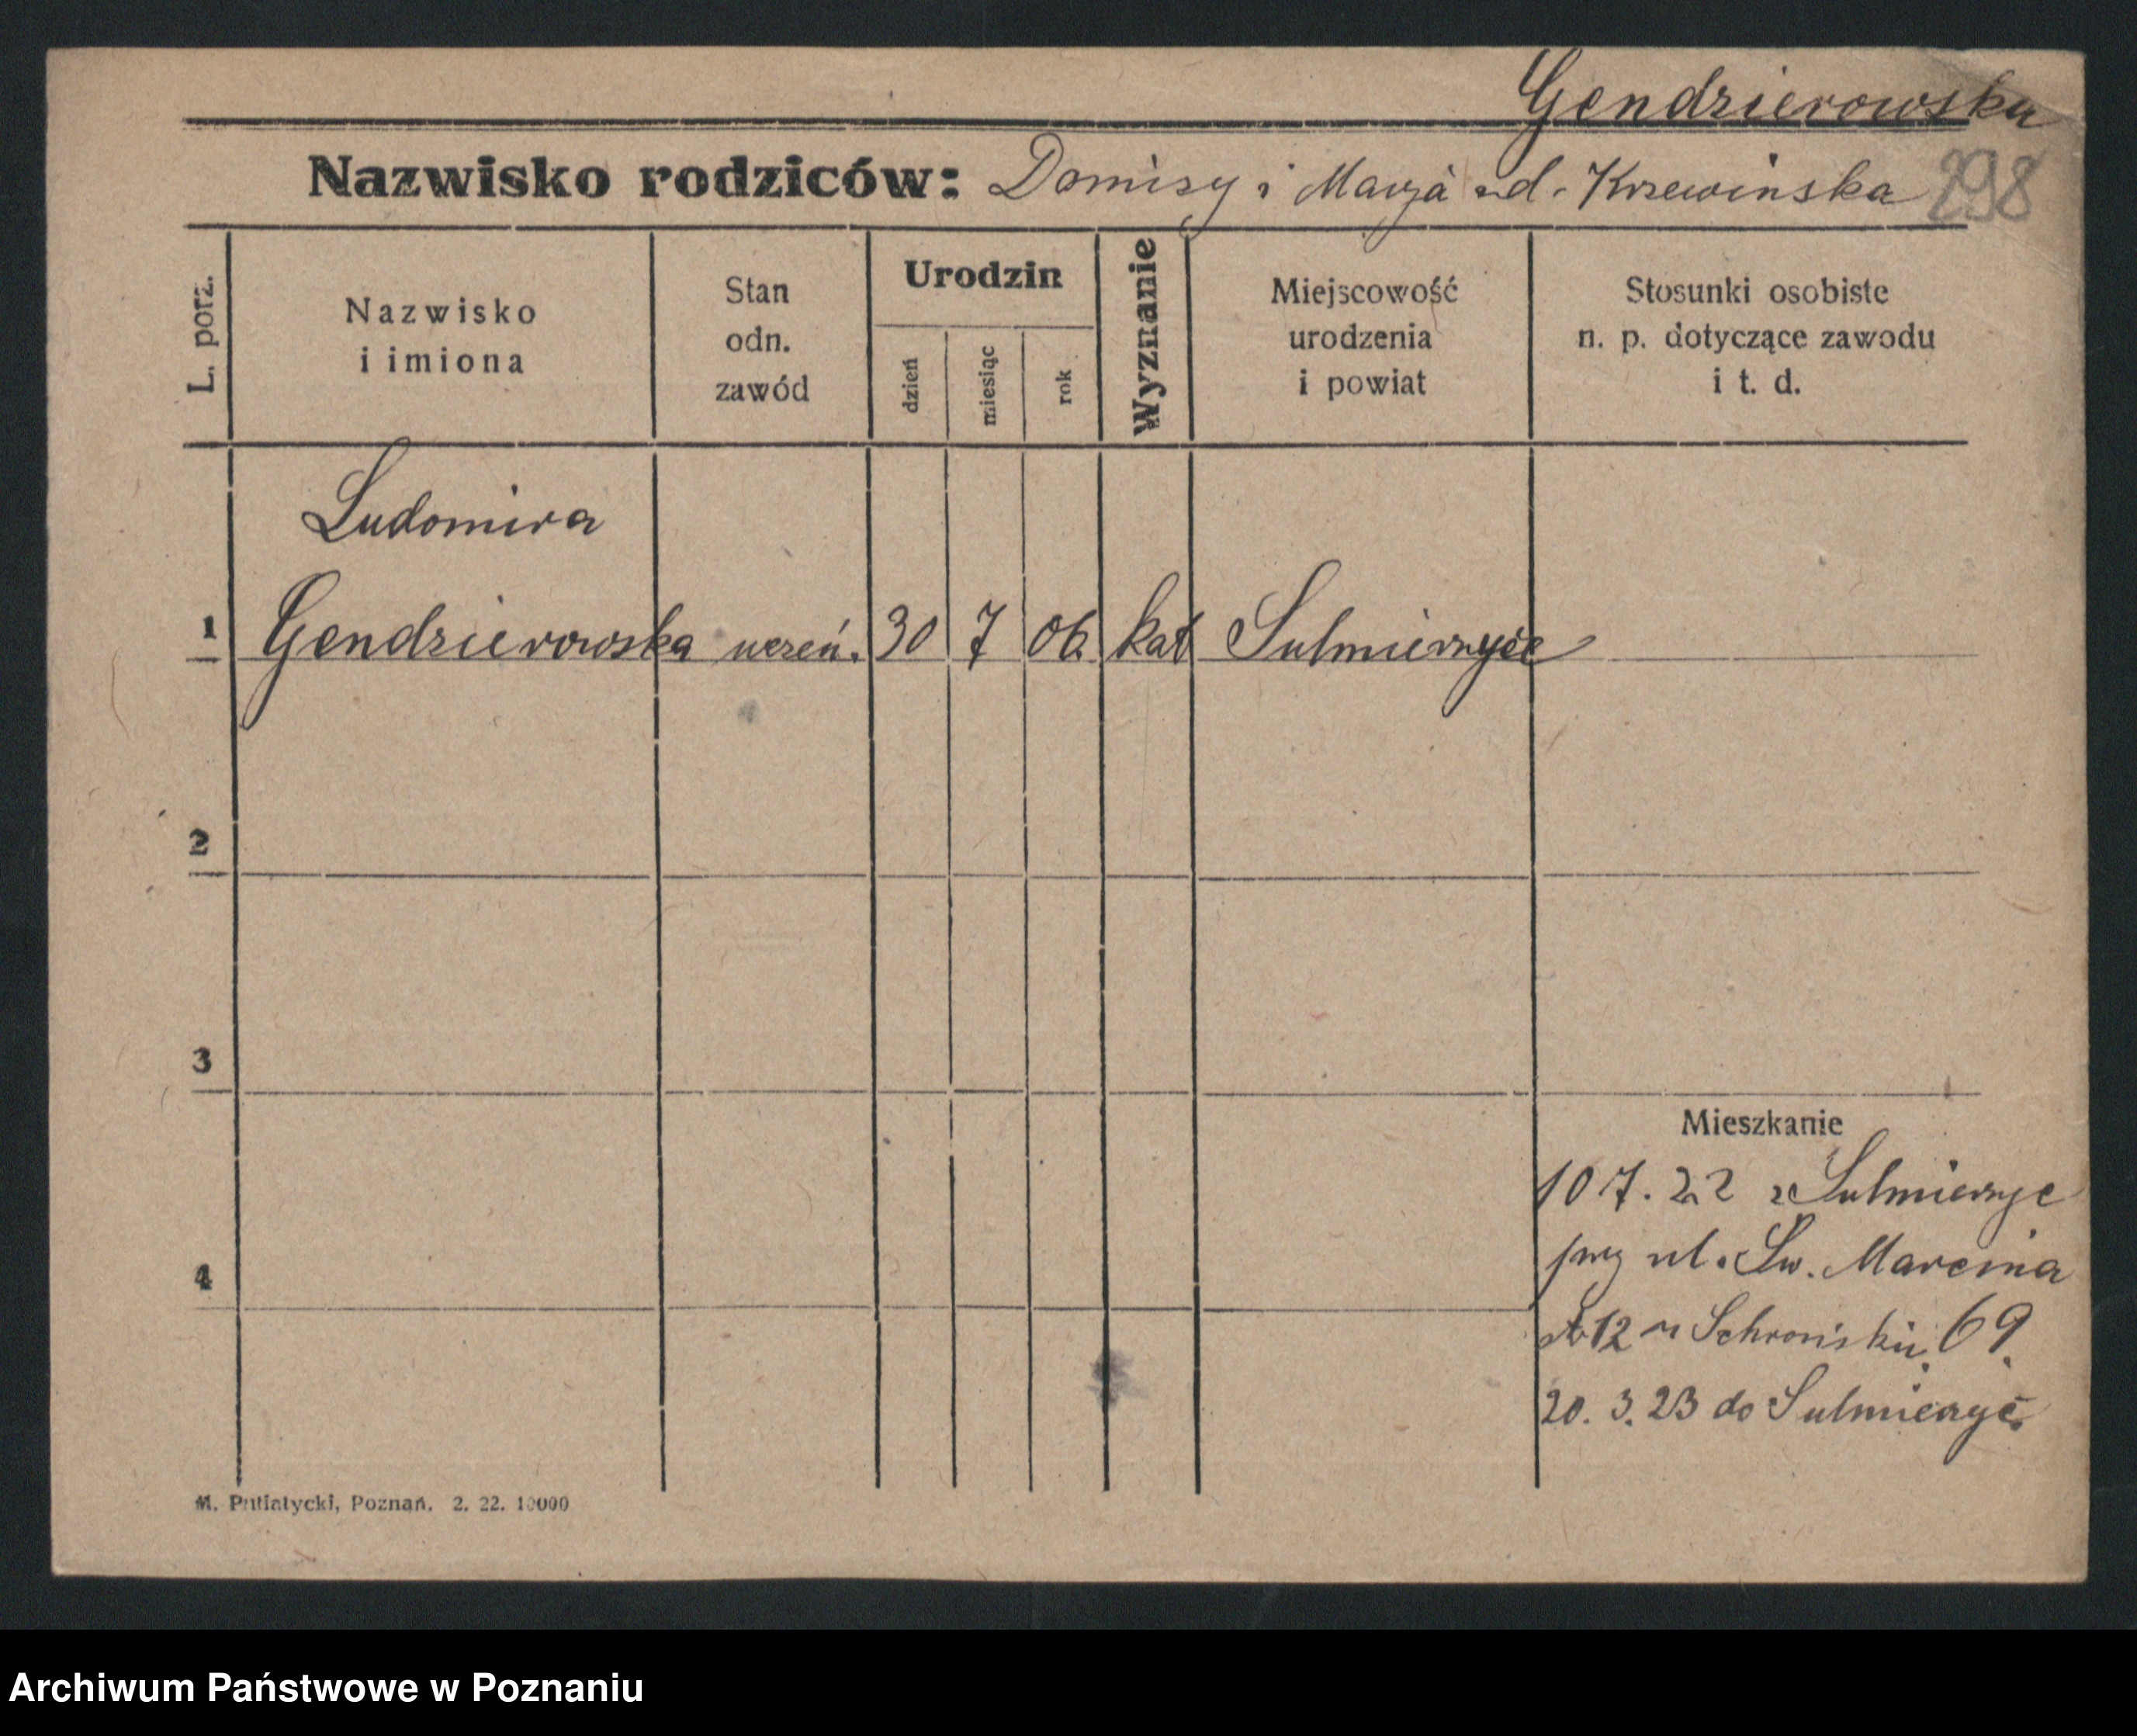 Gendzierowska
Nazwisko rodziców: Domizy i Marja ud. Krzewińska 298
L. porz.
Nazwisko
i imiona
Stan
odn.
zawód
Urodzin
dzień
miesiąc
rok
Wyznanie
Miejscowość
urodzenia
i powiat
Stosunki osobiste
n. p. dotyczące zawodu
i t. d.
Ludomira
1 Gendzierowska uczeń. 30 7 06 kat Sulmierzyce
2
3
Mieszkanie
10 7. 22 z Sulmierzyc
przy ul. Św. Marcina
4
No 12 u Schrońsku. 69.
20. 3. 23 do Sulmierzyc
M. Putiatycki, Poznań. 2. 22. 10000
Archiwum Państwowe w Poznaniu